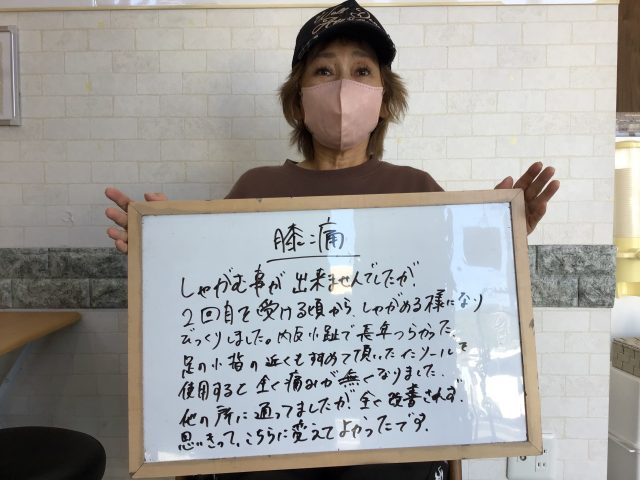 膝痛
しゃがむ事が出来ませんでしたが、
2回目で受ける頃から、しゃがめる様になり
びっくりしました。内反小趾で長年つらかった
足の小指の近くもすすめて頂いたインソールを
使用すると全く痛みが無くなりました。
他の所に通ってましたが全く改善されず、
思いきって、こちらに変えてよかったです。